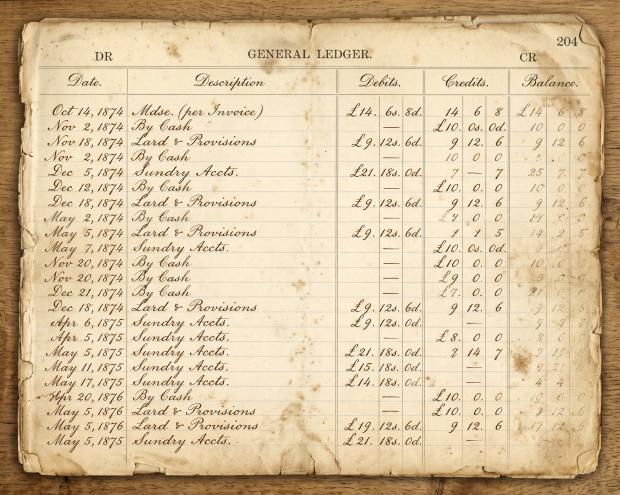 204
DR GENERAL LEDGER. CR
Date. Description Debits. Credits. Balance.
Oct 14, 1874 Mdse. (per Invoice) £14. 6s. 8d. 14 6 8 £14 6 8
Nov 2, 1874 By Cash — £10. 0s. 0d. 10 0 0
Nov 18, 1874 Lard & Provisions £9. 12s. 6d. 9 12. 6 9 12 6
Nov 2, 1874 By Cash — 10 0 0
Dec 5, 1874 Sundry Accts. £21. 18s. 0d. 7 — 7 25 7. 7
Dec 12, 1874 By Cash — £10. 0. 0 10 0 0
Dec 18, 1874 Lard & Provisions £9. 12s. 6d. 9 12. 6 9 12 6
May 2, 1874 By Cash — 0 0
May 5, 1874 Lard & Provisions £9. 12s. 6d. 1 1 5 14 2 5
May 7, 1874 Sundry Accts. — £10. 0s. 0d.
Nov 20, 1874 By Cash — £10 0. 0 10 0
Nov 20, 1874 By Cash — £9 0. 0
Dec 21, 1874 By Cash — £7. 0. 0
Dec 18, 1874 Lard & Provisions £9. 12s. 6d. 9 12. 6
Apr 6, 1875 Sundry Accts. £9. 12s. 0d. —
Apr. 5, 1875 Sundry Accts. — £8. 0 0
May 5, 1875 Sundry Accts. £21. 18s. 0d. 14 7
May 11, 1875 Sundry Accts. £15. 18s. 0d. —
May 17, 1875 Sundry Accts. £14. 18s. 0d. —
Apr 20, 1876 By Cash — £10. 0. 0
May 5, 1876 Lard & Provisions — £10. 0. 0
May 5, 1876 Lard & Provisions £19. 12s. 6d. 9 12. 6
May 5, 1875 Sundry Accts. £21. 18s. 0d. —